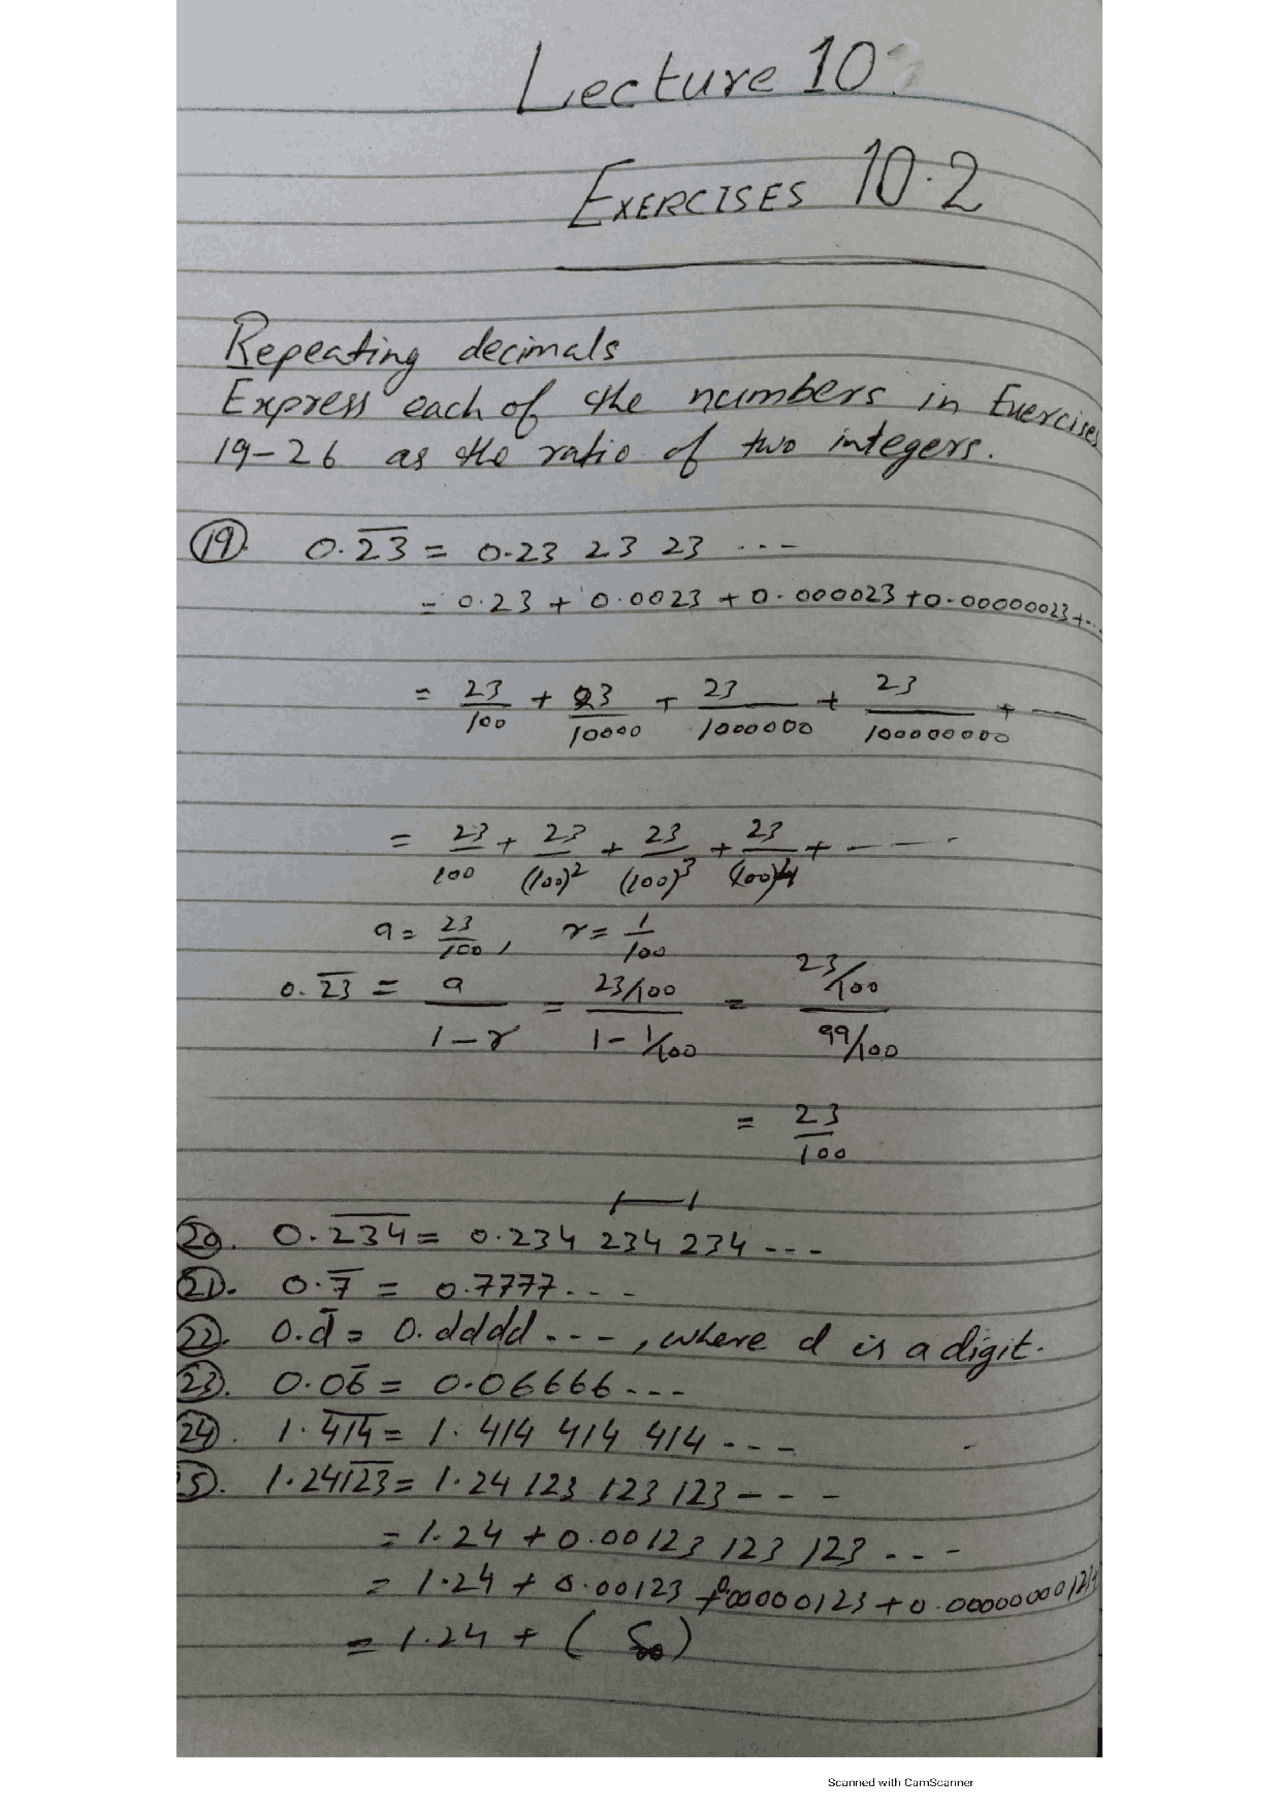 Lecture 10
EXERCISES 10.2
Repeating decimals
Express each of the numbers in Exercises
19-26 as the ratio of two integers.
(19). 0.2̅3̅ = 0.23 23 23 ...
= 0.23 + 0.0023 + 0.000023 + 0.00000023 + ...
= 23/100 + 23/10000 + 23/1000000 + 23/100000000 + ---
= 23/100 + 23/(100)² + 23/(100)³ + 23/(100)⁴ + ----
a = 23/100, r = 1/100
0.2̅3̅ = a/(1-r) = (23/100)/(1-1/100) = (23/100)/(99/100)
= 23/100
(20). 0.2̅3̅4̅ = 0.234 234 234 ---
(21). 0.7̅ = 0.7777...
(22). 0.d̅ = 0.dddd ---, where d is a digit.
(23). 0.06̅ = 0.06666 ---
(24). 1.4̅1̅4̅ = 1.414 414 414 ---
5). 1.241̅2̅3̅ = 1.24 123 123 123 ---
= 1.24 + 0.00123 123 123 ---
= 1.24 + 0.00123 + 0.00000123 + 0.00000000123+
= 1.24 + ( S∞ )
Scanned with CamScanner